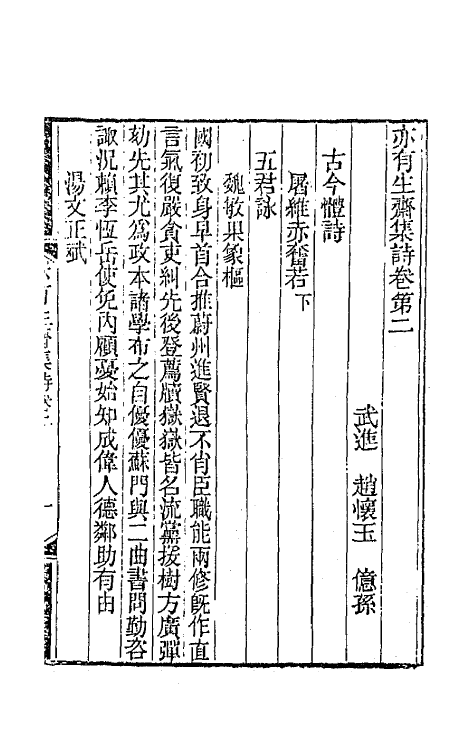 亦有生齋集詩卷第二
武進　趙懷玉　億孫
古今體詩
屠維赤奮若下
五君詠
魏敏果象樞
國初致身早首合推蔚州進賢退不肖臣職能兩修旣作直
言氣復嚴貪吏糾先後登薦牘嶽嶽皆名流黨援樹方廣彈
劾先其尤爲政本諸學布之自優優蘇門與二曲書問勤咨
諏況賴李恆岳使免內顧憂始知成偉人德鄰助有由
湯文正斌
亦有生齋集詩卷二
一